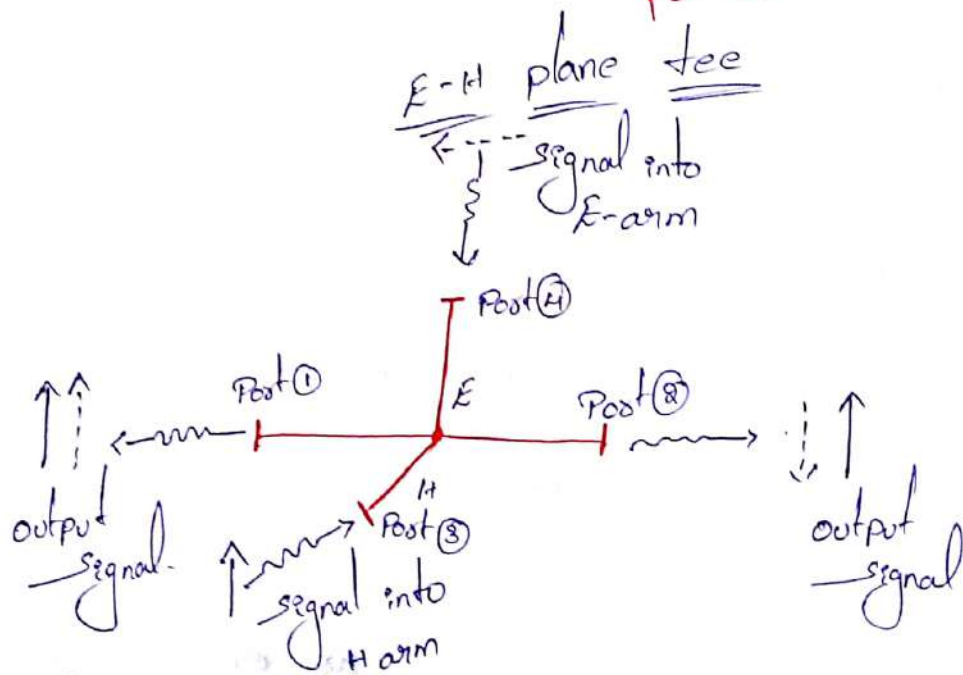 E-H plane tee
signal into
E-arm
Port ④
Port ①
E
Port ②
H
Port ③
output
signal.
signal into
H arm
output
signal